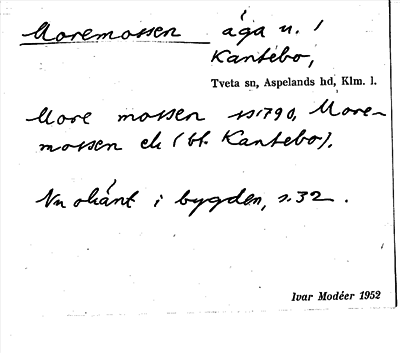 Moremossen äga u. 1
Kantebo,
Tveta sn, Aspelands hd, Klm. l.
More mossen 1790, More-
mossen ek (bl. Kantebo).
Nu okänt i bygden, s. 32.
Ivar Modéer 1952